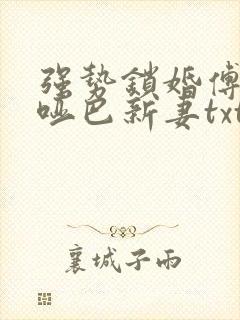 强势鎖婚傅
哑巴新妻txt
襄城子雨